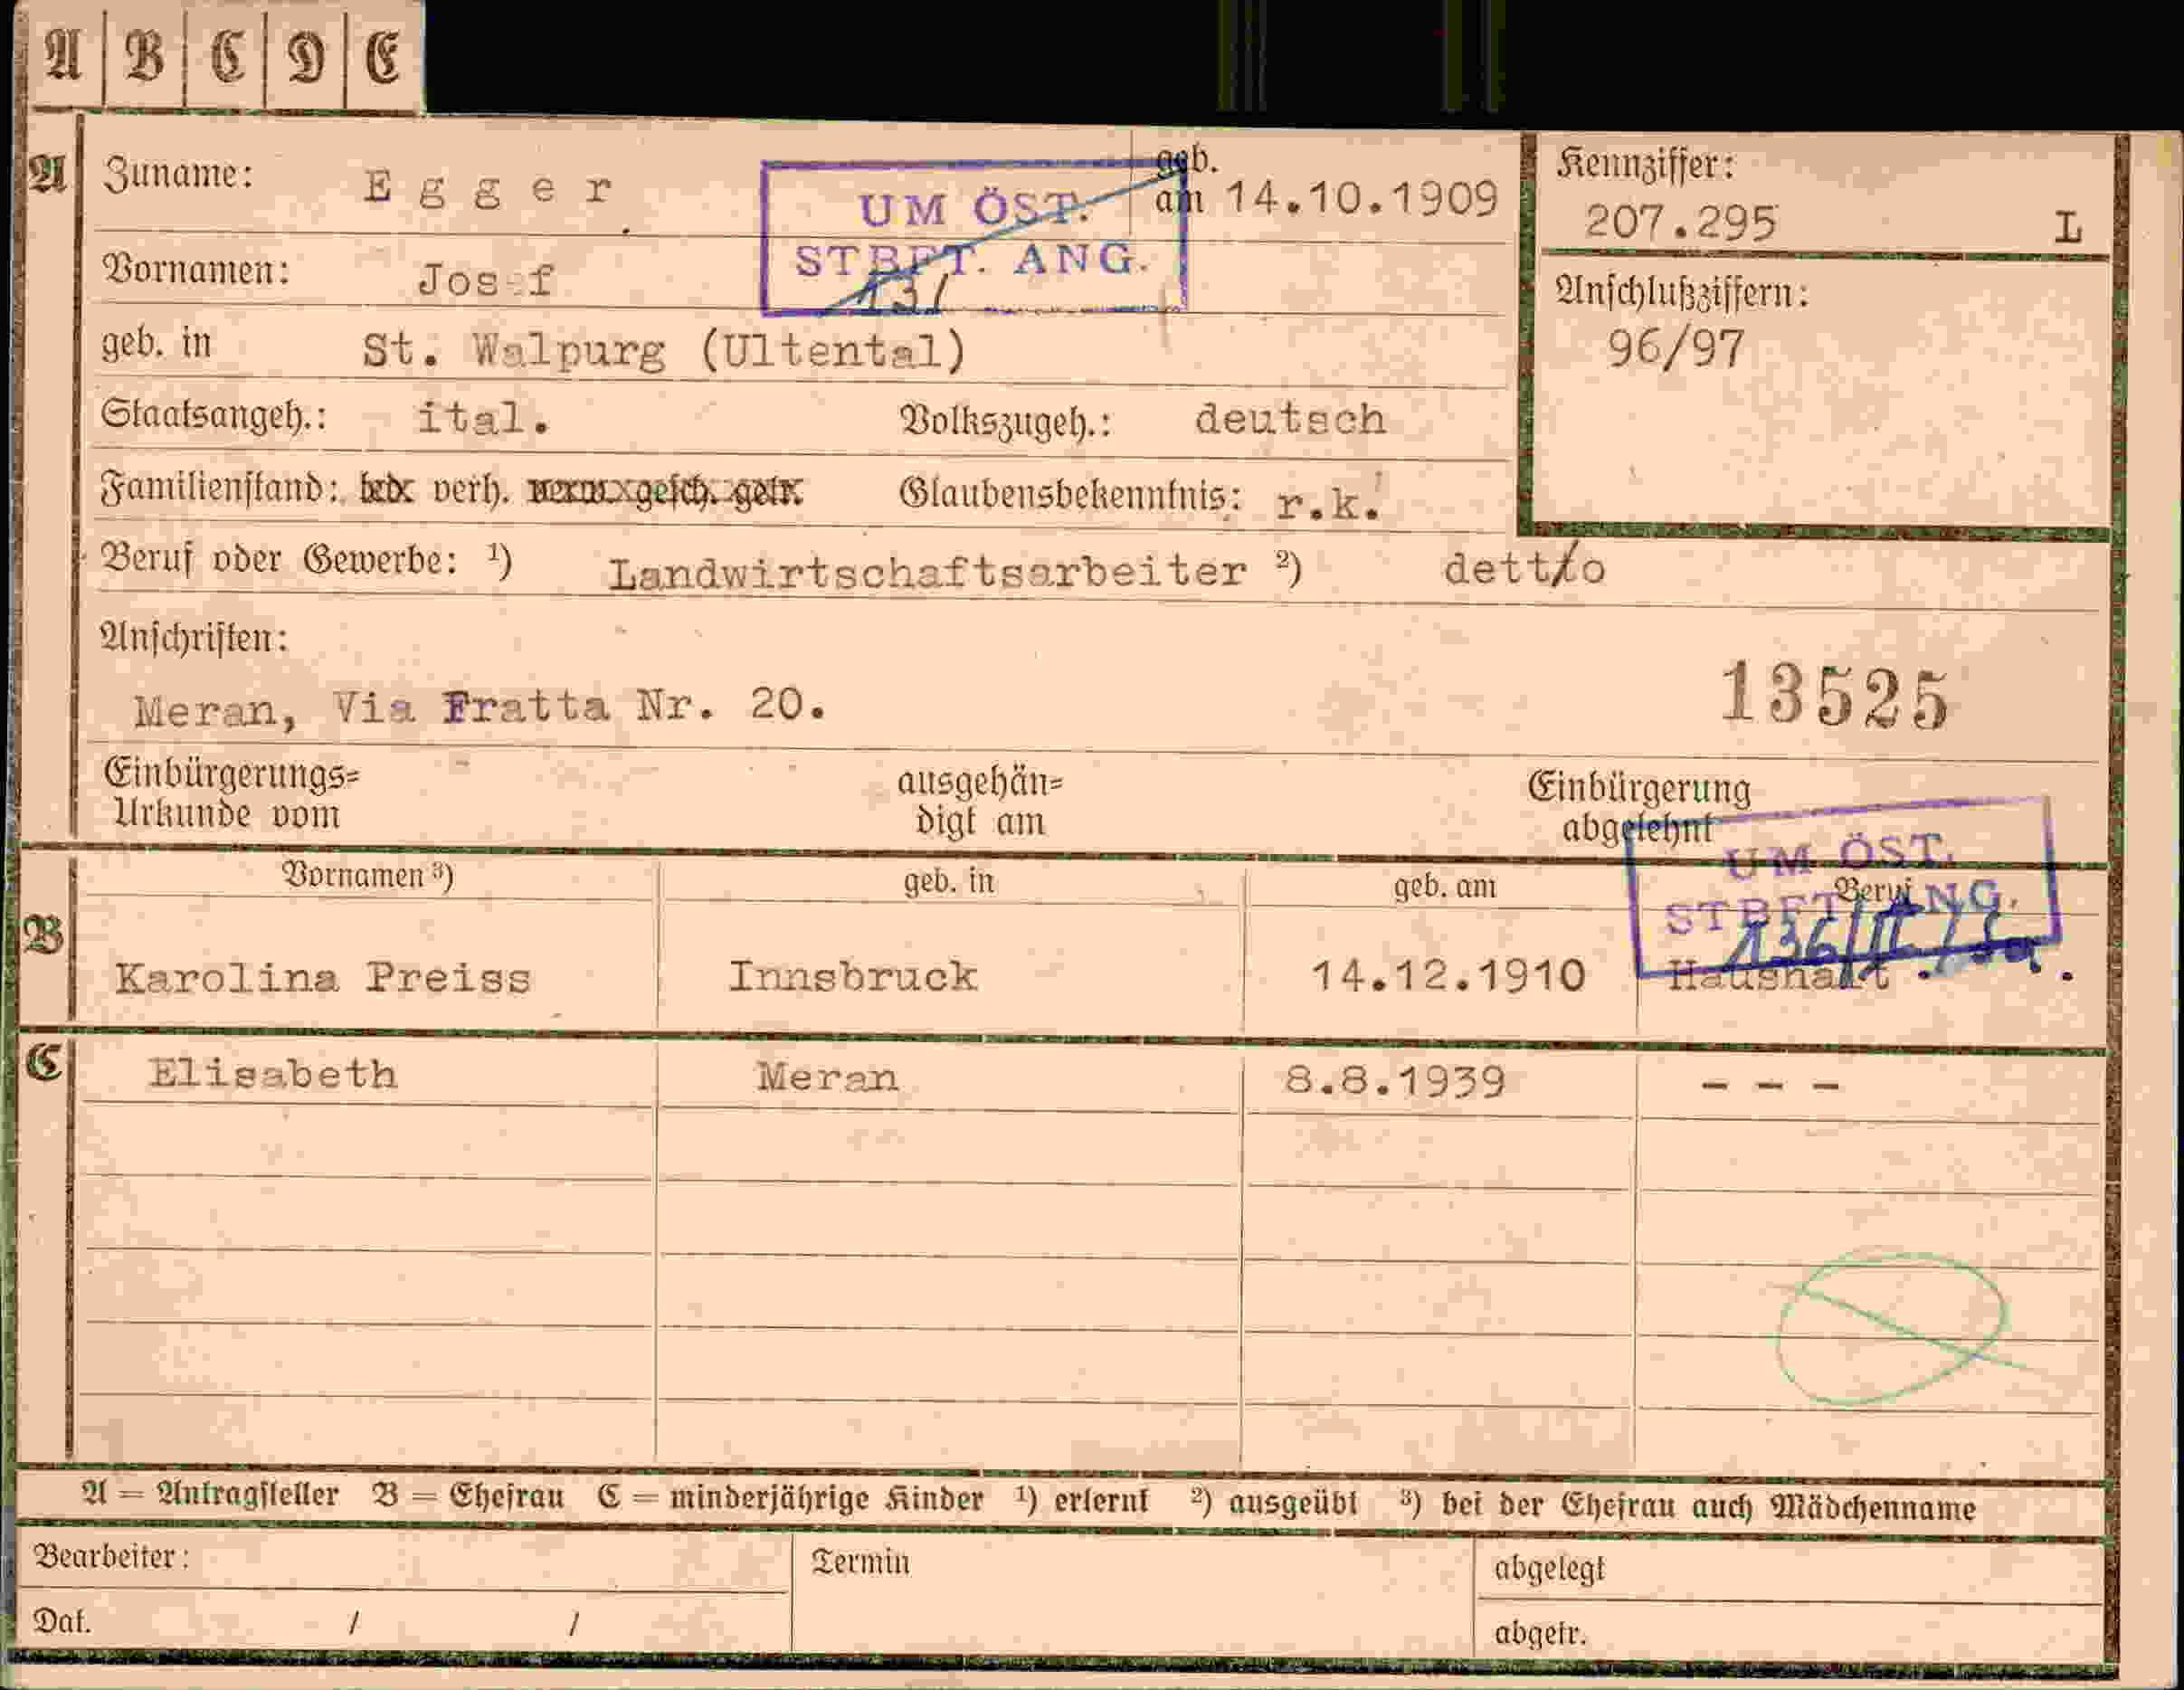 A B C D E
A Zuname: Egger geb. am 14.10.1909
UM ÖST. STBFT. ANG.
Kennziffer: 207.295 L
Vornamen: Josef
Anschlußziffern: 96/97
geb. in St. Walpurg (Ultental)
Staatsangeh.: ital. Volkszugeh.: deutsch
Familienstand: verh. gesch. getr. Glaubensbekenntnis: r.k.
Beruf oder Gewerbe: ¹) Landwirtschaftsarbeiter ²) detto
Anschriften:
Meran, Via Fratta Nr. 20. 13525
Einbürgerungs= Urkunde vom ausgehän= digt am Einbürgerung abgelehnt
UM ÖST. STBFT. ANG.
Vornamen ³) geb. in geb. am Beruf
B Karolina Preiss Innsbruck 14.12.1910 Haushalt
C Elisabeth Meran 8.8.1939 - - -
A = Antragsteller B = Ehefrau C = minderjährige Kinder ¹) erlernt ²) ausgeübt ³) bei der Ehefrau auch Mädchenname
Bearbeiter: Termin abgelegt
Dat. / / abgetr.